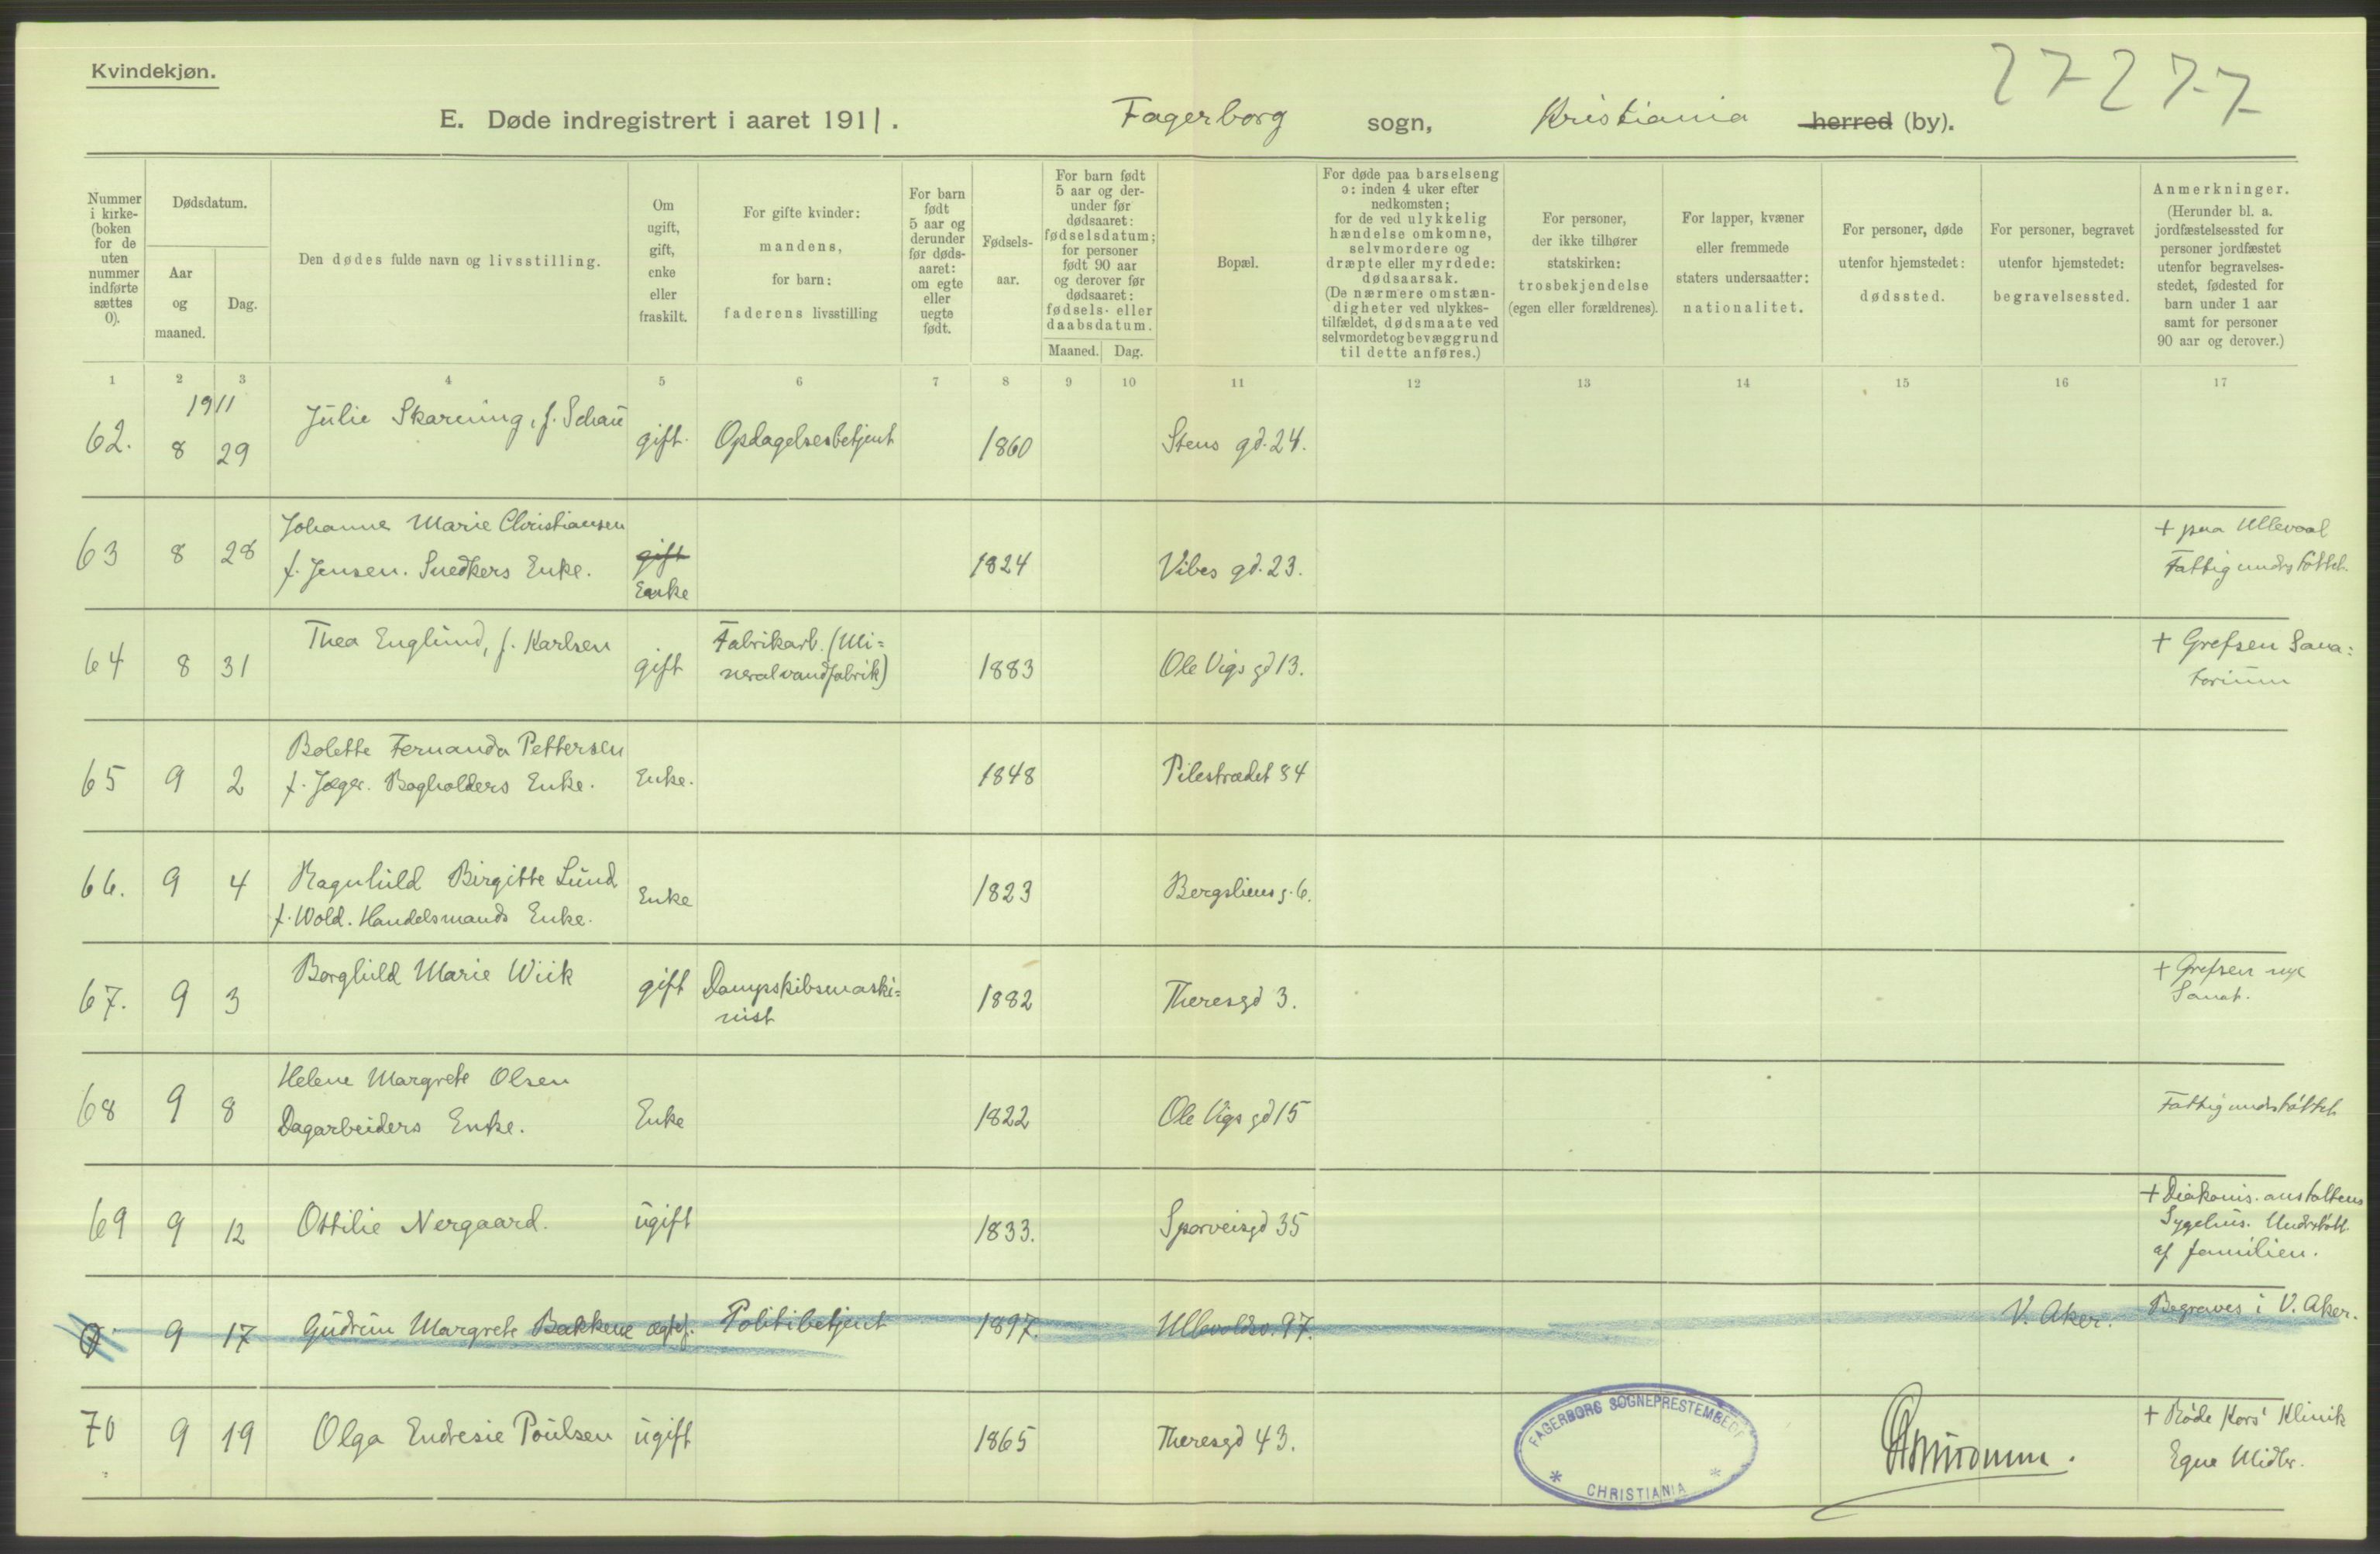 Kvindekjøn.
27277
E. Døde indregistrert i aaret 1911. Fagerborg sogn, Kristiania herred (by).
Nummer i kirke- (boken for de uten nummer indførte sættes 0).
Dødsdatum.
Aar og maaned.
Dag.
Den dødes fulde navn og livsstilling.
Om ugift, gift, enke eller fraskilt.
For gifte kvinder: mandens, for barn: faderens livsstilling
For barn født 5 aar og derunder før døds- aaret: om egte eller uegte født.
Fødsels- aar.
For barn født 5 aar og der- under før dødsaaret: fødselsdatum; for personer født 90 aar og derover før dødsaaret: fødsels- eller daabsdatum.
Maaned. Dag.
Bopæl.
For døde paa barselseng ɔ: inden 4 uker efter nedkomsten; for de ved ulykkelig hændelse omkomne, selvmordere og dræpte eller myrdede: dødsaarsak. (De nærmere omstæn- digheter ved ulykkes- tilfældet, dødsmaate ved selvmordet og bevæggrund til dette anføres.)
For personer, der ikke tilhører statskirken: trosbekjendelse (egen eller forældrenes).
For lapper, kvæner eller fremmede staters undersaatter: nationalitet.
For personer, døde utenfor hjemstedet: dødssted.
For personer, begravet utenfor hjemstedet: begravelsessted.
Anmerkninger. (Herunder bl. a. jordfæstelsessted for personer jordfæstet utenfor begravelses- stedet, fødested for barn under 1 aar samt for personer 90 aar og derover.)
1 2 3 4 5 6 7 8 9 10 11 12 13 14 15 16 17
1911
62. 8 29 Julie Skarning, f. Schau gift. Opdagelsesbetjent 1860 Stens gd. 24.
63 8 28 Johanne Marie Christiansen f. Jensen. Snedkers Enke. gift Enke 1824 Vibes gd. 23. + paa Ullevaal Fattigunderstøttet.
64 8 31 Thea Englund, f. Karlsen gift Fabrikarb. (Mi= neralvandfabrik) 1883 Ole Vigs gd 13. + Grefsen Sana= torium
65 9 2 Bolette Fernanda Pettersen f. Jæger. Bogholders Enke. Enke. 1848 Pilestrædet 84
66. 9 4 Ragnhild Birgitte Lund f. Wold. Handelsmands Enke. Enke 1823 Bergsliens g. 6.
67. 9 3 Borghild Marie Wiik gift Dampskibsmaski= nist 1882 Theresgd 3. + Grefsen nye Sanat.
68 9 8 Helene Margrete Olsen Dagarbeiders Enke. Enke 1822 Ole Vigs gd 15 Fattigunderstøttet
69 9 12 Ottilie Nergaard. ugift 1833. Sporveisgd 35 + Diakonis.anstaltens Sygehus. Understøtt. af familien.
0 9 17 Gudrun Margrete Bakkene Politibetjent 1897. Ullevoldsv. 97. V. Aker. Begraves i V. Aker.
70 9 19 Olga Endresie Poulsen ugift 1865 Theresgd 43. + Røde Kors' Klinik Egne Midler.
FAGERBORG SOGNEPRESTEMBEDE
* CHRISTIANIA *